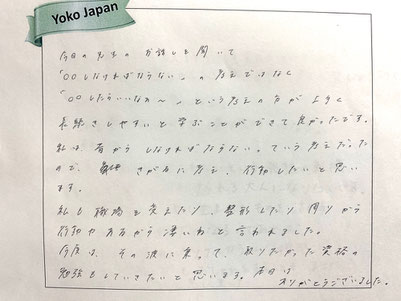 Yoko Japan
今日の先生のお話しを聞いて
「○○しなければならない」の考えではなく
「○○したらいいな〜」という考えの方がより
長続きしやすいと学ぶことができて良かったです。
私は昔からしなければならない。っていう考えだった
ので、 さが方に考え、行動したいと思い
ます。
私も職場を変えたり、整形したり周りから
行動や方が凄いねと言われました。
今度は、その波に乗って、取りたかった資格の
勉強もしていきたいと思います。本日は
ありがとうございました。